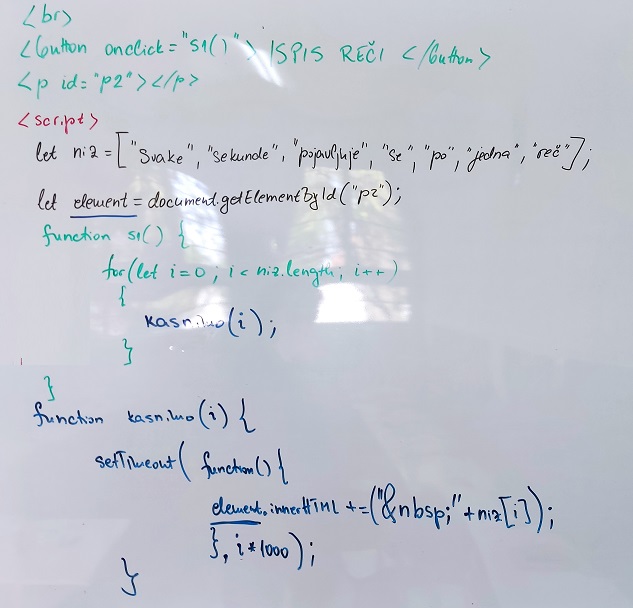 <br>
<button onclick="s1()"> ISPIS REČI </button>
<p id="p2"></p>
<script>
let niz = ["Svake", "sekunde", "pojavljuje", "se", "po", "jedna", "reč"];
let element = document.getElementById("p2");
function s1() {
for(let i=0; i < niz.length; i++)
{
kasnimo(i);
}
}
function kasnimo(i) {
setTimeout( function() {
element.innerHTML += ("&nbsp;" + niz[i]);
}, i*1000);
}